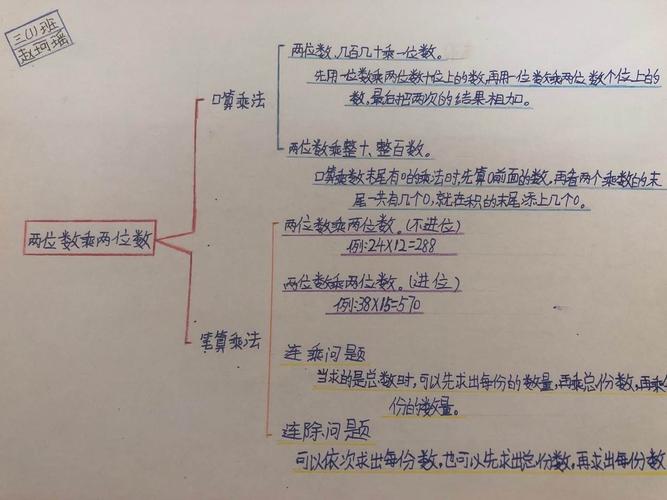 三(1)班
赵珂瑶
两位数乘两位数
口算乘法
两位数,几百几十乘一位数。
先用一位数乘两位数十位上的数,再用一位数乘两位数个位上的
数,最后把两次的结果相加。
两位数乘整十、整百数。
口算乘数末尾有0的乘法时,先算0前面的数,再看两个乘数的末
尾一共有几个0,就在积的末尾添上几个0。
笔算乘法
两位数乘两位数。(不进位)
例:24×12=288
两位数乘两位数。(进位)
例:38×15=570
连乘问题
当求的是总数时,可以先求出每份的数量,再乘总份数,再乘
份的数量。
连除问题
可以依次求出每份数,也可以先求出总份数,再求出每份数